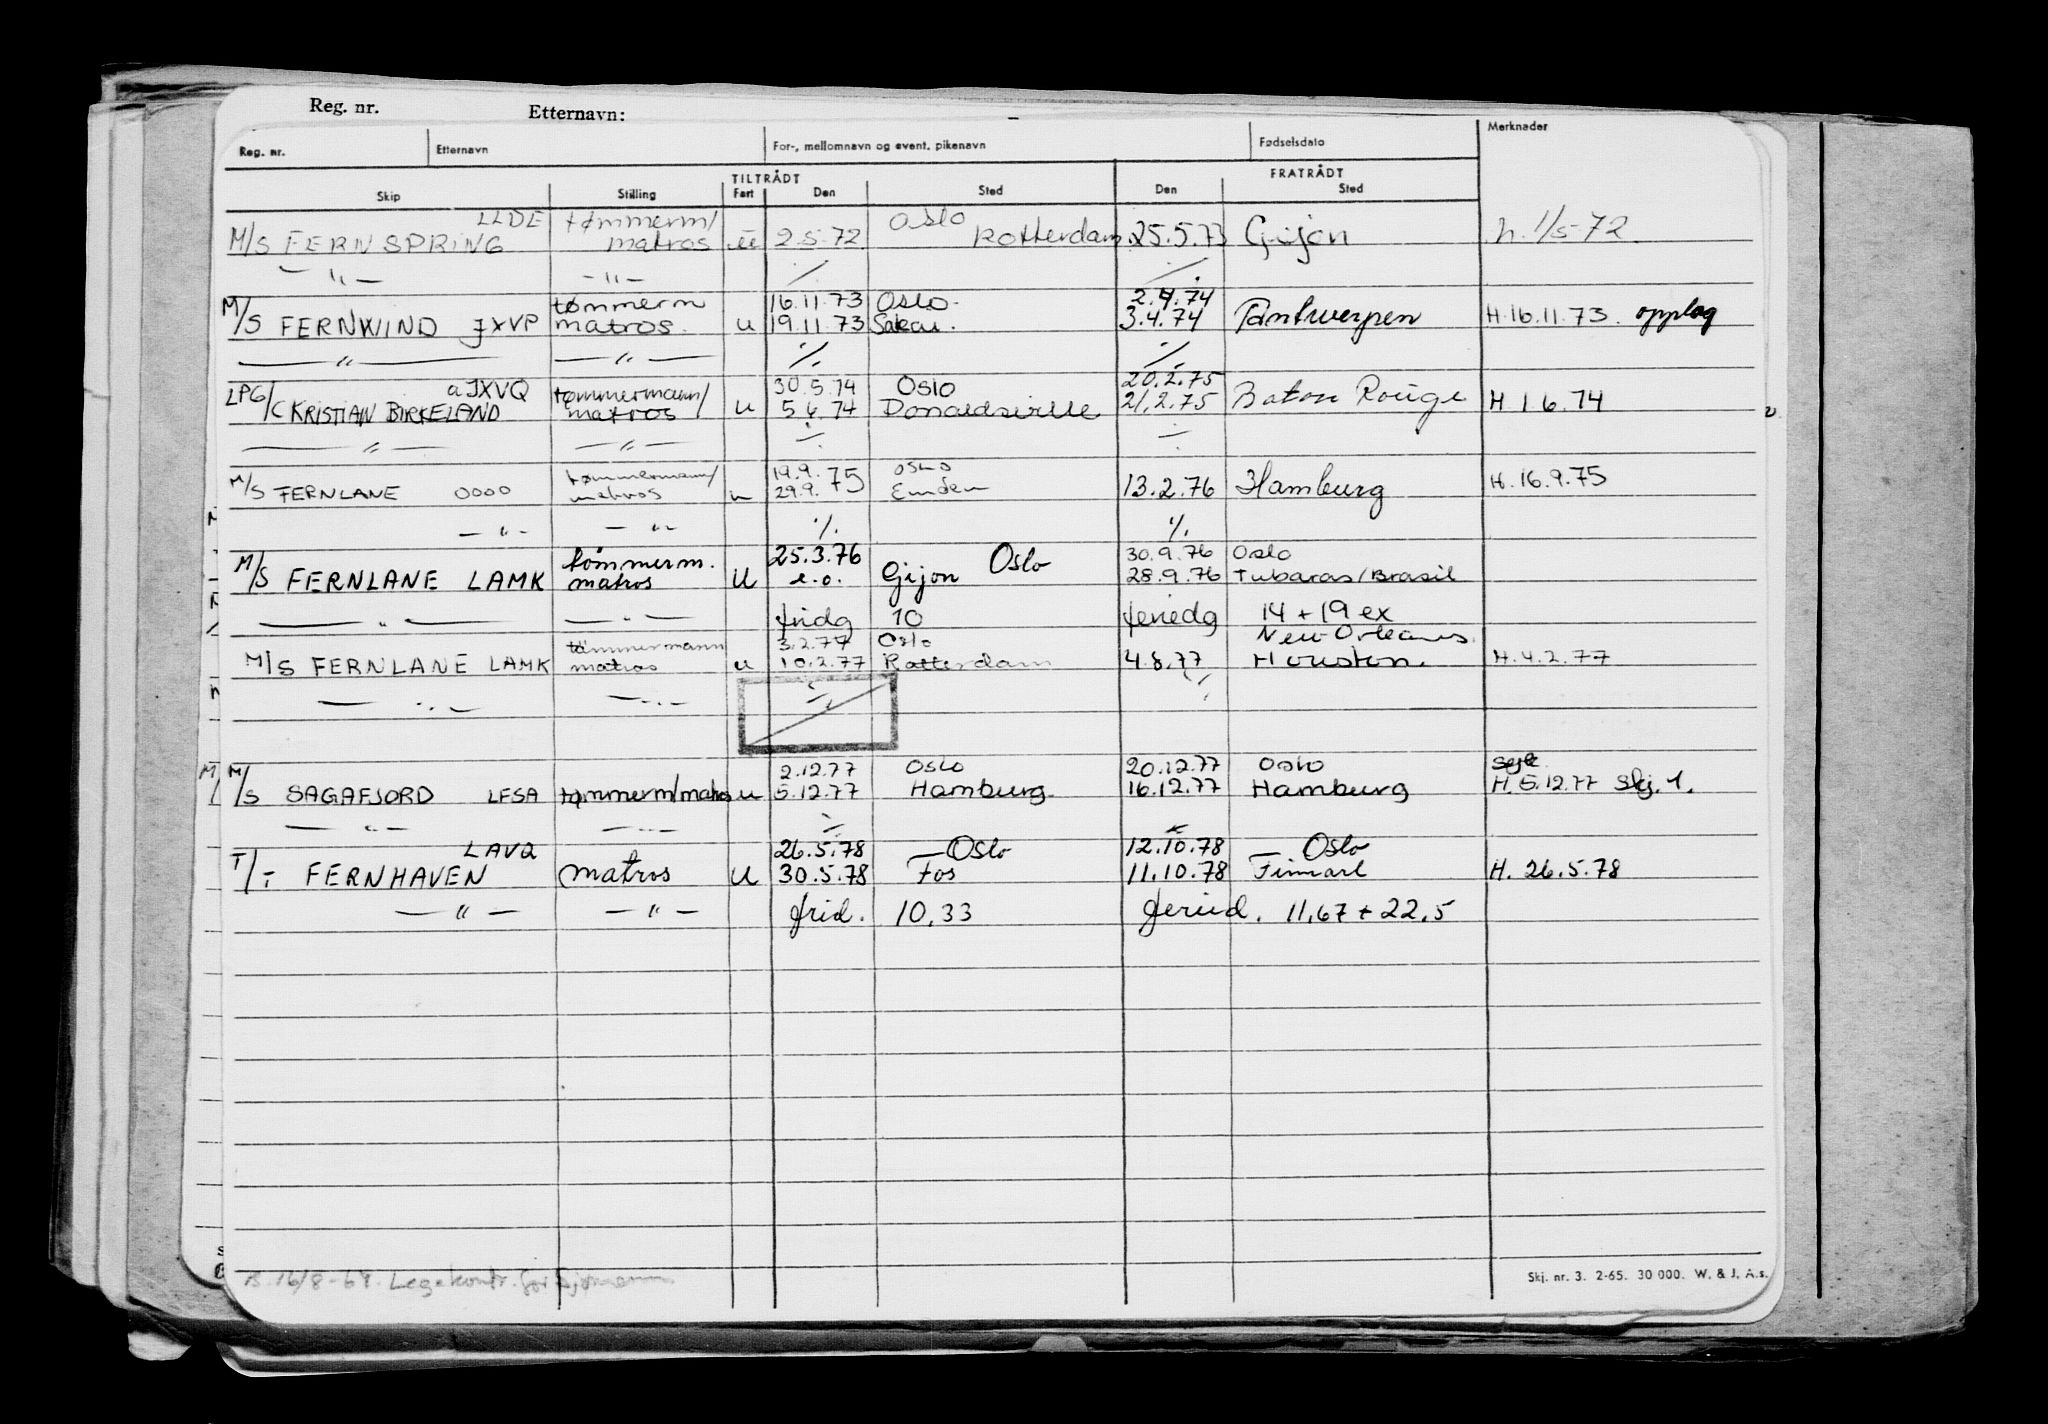 Reg. nr. Etternavn:
Reg. nr. Etternavn For-, mellomnavn og event. pikenavn Fødselsdato Merknader
TILTRÅDT FRATRÅDT
Skip Stilling Fart Den Sted Den Sted
LLDE tømmerm/ Oslo
M/S FERNSPRING matros u 2.5.72 Rotterdam 25.5.73 Gijon h. 1/5-72
— " — — " — ./. ./.
tømmerm 16.11.73 Oslo 2.4.74
M/S FERNWIND JXVP matros. u 19.11.73 Sakai. 3.4.74 Antwerpen H. 16.11.73. opplag
— " — — " — ./. ./.
aJXVQ tømmermann/ 30.5.74 Oslo 20.2.75
LPG/C KRISTIAN BIRKELAND matros u 5.6.74 Donaldsville 21.2.75 Baton Rouge H 1 6.74
— " — — " — ./. ./.
tømmermann/ 19.9. Oslo
M/S FERNLANE OOOO matros u 29.9. 75 Emden 13.2.76 Hamburg H. 16.9.75
— " — — " — ./. ./.
tømmerm. 25.3.76 Oslo 30.9.76 Oslo
M/S FERNLANE LAMK matros u e.o. Gijon 28.9.76 Tubarao/Brasil
— " — — " — fridg 10 feriedg 14 + 19 ex
tömmermann 3.2.77 Oslo New Orleans
M/S FERNLANE LAMK matros u 10.2.77 Rotterdam 4.8.77 Houston. H. 4.2.77
— " — — " — ./. ./.
2.12.77 Oslo 20.12.77 Oslo
M/S SAGAFJORD LFSA tømmerm/matros u 5.12.77 Hamburg 16.12.77 Hamburg H. 5.12.77 Skj. 1.
— " — — " — ./.
LAVQ 26.5.78 — Oslo 12.10.78 — Oslo
T/T FERNHAVEN matros u 30.5.78 Fos 11.10.78 H. 26.5.78
— " — — " — frid. 10,33 feried. 11,67 + 22,5
B. 16/8-68. Legekontr. for sjømenn
Skj. nr. 3. 2-65. 30 000. W. & J. A.s.